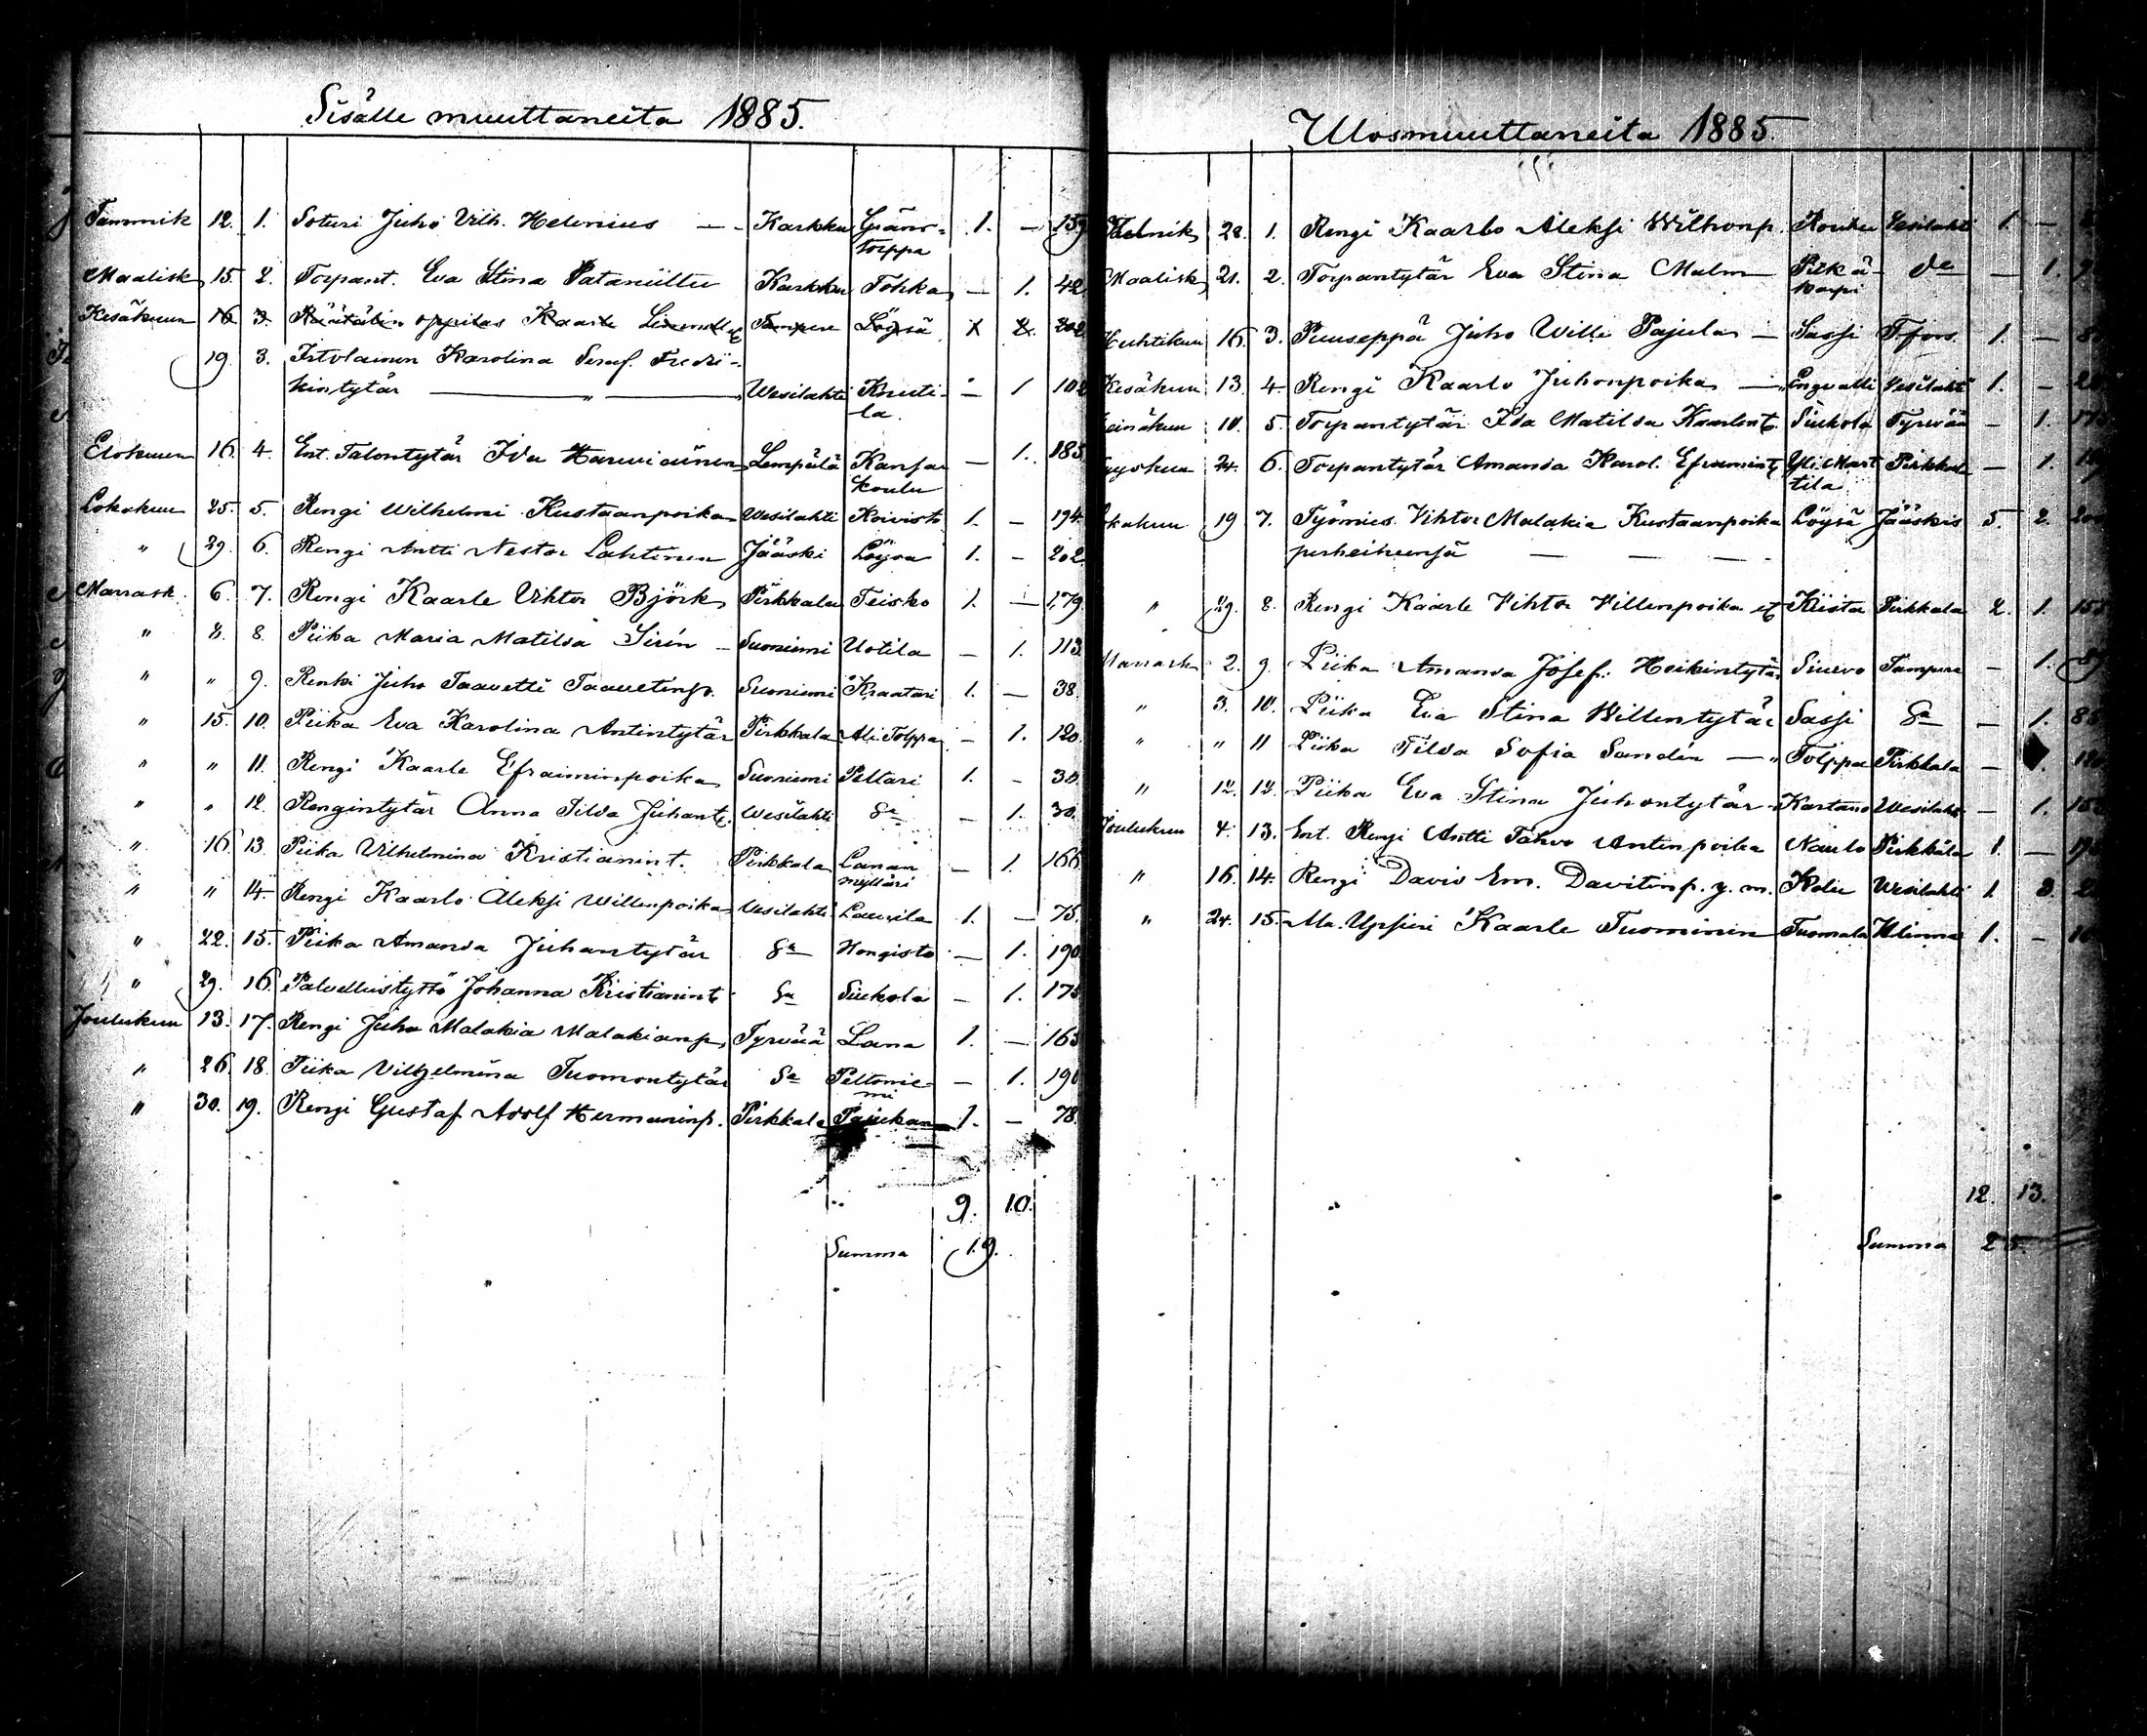 Sisälle muuttaneita 1885.
Tammik 12. 1. Soturi Juho Vilh. Helenius — Karkku Gräns- 1. — 159
torppa
Maalisk 15. 2. Torpant. Eva Stina Karkku Tohka — 1. 42.
Kesäkuun 16. 3. Räätälin oppilas Kaarle Tampere Löysä 1. 2. 202
19. 3. Karolina Seraf. Fredri-
kintytär — " — Wesilahti Knuuti- — 1 102
la.
Elokuun 16. 4. Ent. Talontytär Ida Lempälä Kansa — 1. 185.
koulu
Lokakuun 25. 5. Rengi Wilhelmi Kustaanpoika Wesilahti Koivisto 1. — 194.
" 29. 6. Rengi Antti Nestor Lahtinen Jääski Löysä 1. — 202.
Marrask. 6. 7. Rengi Kaarle Vihtor Björk Pirkkala Teisko 1. — 179.
" 8. 8. Piika Maria Matilda Sirén — Suoniemi Uotila — 1. 113.
" " 9. Renki Juho Taavetti Taavetinp. Suoniemi Kraatari 1. — 38.
" 15. 10. Piika Eva Karolina Antintytär Pirkkala Ali-Tolppa — 1. 120.
" " 11. Rengi Kaarle Efraiminpoika Suoniemi Peltari 1. — 30.
" " 12. Rengintytär Anna Tilda Juhant. Wesilahti Sa — 1. 30.
" 16. 13. Piika Vilhelmina Kristianint. Pirkkala Lanan — 1. 166.
mylläri
" " 14. Rengi Kaarlo Aleksi Willenpoika Wesilahti Laurila 1. — 75.
" 22. 15. Piika Amanda Juhantytär Sa Hongisto — 1. 190.
" 29. 16. Palvellustyttö Johanna Kristianint. Sa Siukola — 1. 175
Joulukuun 13. 17. Rengi Juho Malakia Malakianp. Tyrvää Lana 1. — 165
" 26. 18. Piika Vilhelmina Tuomontytär Sa Peltonie- — 1. 190
mi
" 30. 19. Rengi Gustaf Adolf Hermaninp. Pirkkala 1. — 78.
9. 10.
Summa 19.
Ulosmuuttaneita 1885.
Helmik 28. 1. Rengi Kaarlo Aleksi Wilhonp. Wesilahti 1. —
Maalisk 21. 2. Torpantytär Eva Stina Malm Pitkä- — 1.
Huhtikuu 16. 3. Puuseppä Juho Wille Pajula — Sassi T.fors. 1. —
Kesäkuu 13. 4. Rengi Kaarlo Juhonpoika — Wesilahti 1. —
10. 5. Torpantytär Ida Matilda Kaarlont. Siukola Tyrvää — 1.
24. 6. Torpantytär Amanda Karol. Efraimint. Yli-Mart Pirkkala — 1.
tila
19 7. Työmies Vihtor Malakia Kustaanpoika Löysä Jääskis 5. 2.
perheinensä — — —
" 29. 8. Rengi Kaarle Vihtor Villenpoika Pirkkala 2. 1.
Marrask 2. 9. Piika Amanda Josef. Heikintytär Siuro Tampere — 1.
" 3. 10. Piika Eva Stina Willentytär Sassi Sa — 1.
" " 11 Piika Tilda Sofia Sandén — " Tolppa Pirkkala —
" 12. 12. Piika Eva Stina Juhontytär Kartano Wesilahti — 1.
Joulukuu 4. 13. Ent. Rengi Antti Tahvo Antinpoika Pirkkala 1. —
" 16. 14. Rengi David Em. Davitinp. y. m. Wesilahti 1. 3.
" 24. 15. Kaarle Tuominen Tuomala 1. —
12. 13.
Summa 25.